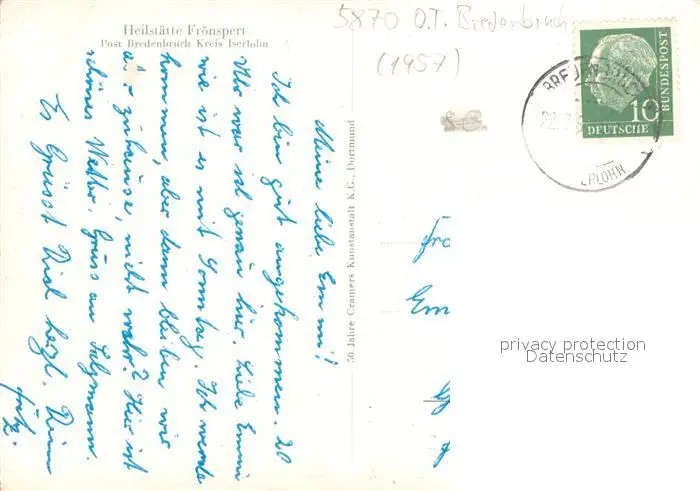 Heilstätte Frönspert
Post Bredenbruch Kreis Iserlohn
5870 O.T. Bredenbruch
(1957)
Meine liebe Emmi!
Ich bin gut angekommen. 20
Uhr war ich genau hier. Liebe Emmi
wie ist es mit Sonntag. Ich werde
kommen, aber dann bleiben wir
zuhause, nicht wahr? Hier ist
schönes Wetter. Gruss an
Es Grüsst Dich herzl. Dein
Fritz.
50 Jahre Cramers Kunstanstalt K.G., Dortmund
Fra
Em
10
DEUTSCHE
BUNDESPOST
22.7
RLOHN
privacy protection
Datenschutz